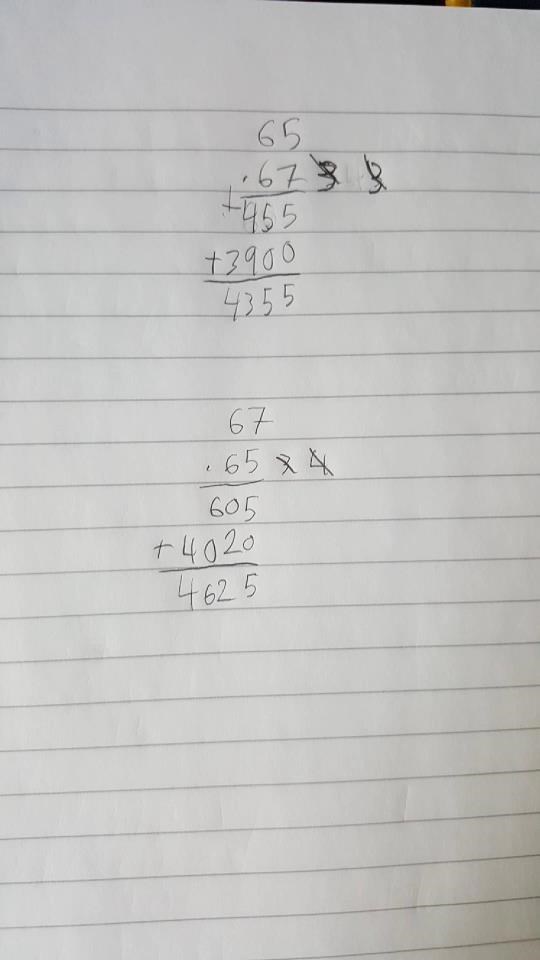 65
.67
+455
+3900
4355
67
.65
605
+4020
4625